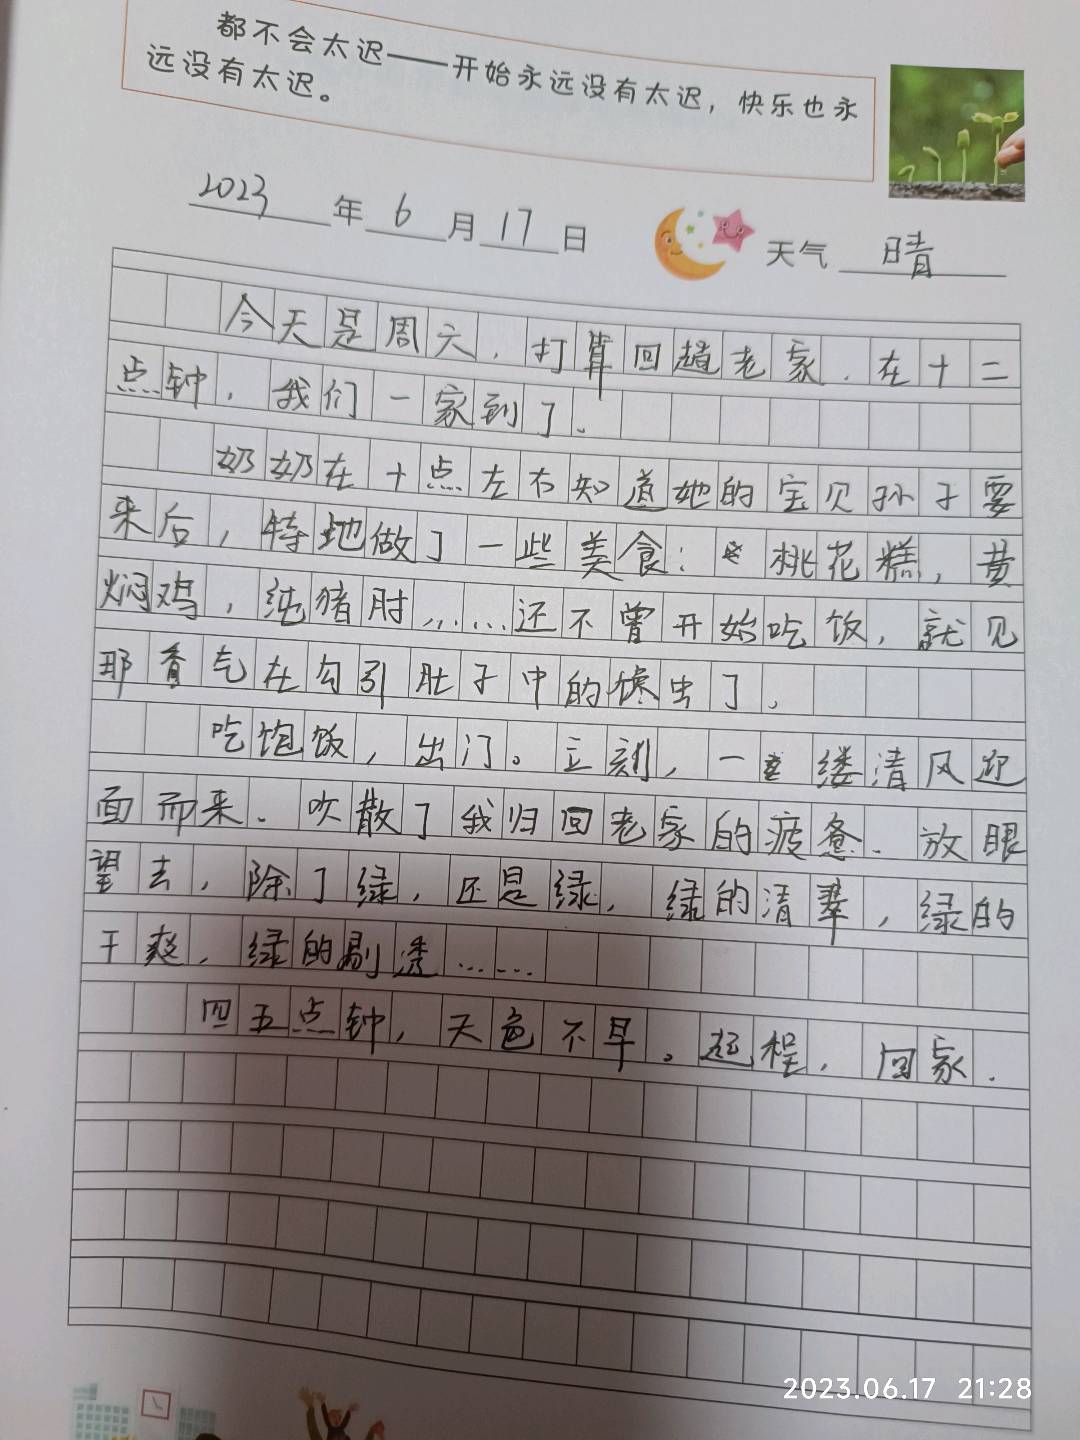 都不会太迟——开始永远没有太迟，快乐也永
远没有太迟。
2023年6月17日 天气 晴
今天是周六，打算回趟老家．在十二
点钟，我们一家到了。
奶奶在十点左右知道她的宝贝孙子要
来后，特地做了一些美食：桃花糕，黄
焖鸡，纯猪肘……还不曾开始吃饭，就见
那香气在勾引肚子中的馋虫了。
吃饱饭，出门。立刻，一缕清风迎
面而来．吹散了我归回老家的疲惫．放眼
望去，除了绿，还是绿，绿的清翠，绿的
干爽，绿的剔透……
四五点钟，天色不早。起程，回家．
2023.06.17 21:28